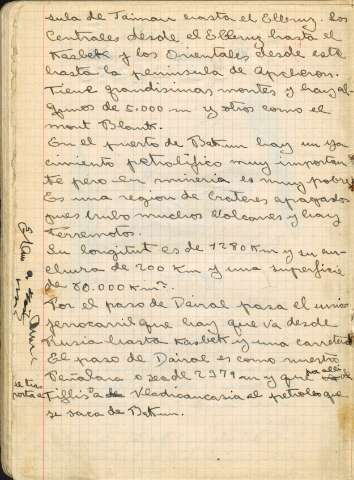 sula de Taiman hasta el Elbruz. los
Centrales desde el Elbruz hasta el
Kasbek y los Orientales desde este
hasta la peninsula de Apcheron.
Tiene grandisimas montes y hay al-
gunos de 5.000 m y otros como el
mont Blank.
En el puerto de Batum hay un ya
cimiento petrolifico muy importan
te pero en mineria es muy pobre
Es una region de crateres apagados
pues hubo muchos volcanes y hay
terremotos.
Su longitut es de 1280 Km y su an-
chura de 200 Km y una superficie
de Km².
Por el paso de Dairal pasa el unico
ferrocarril que hay que va desde
Rusia hasta Kasbek y una carretera
El paso de Dairal es como nuestro
Peñalara o sea de 2379 m y que por alli
se trans
porta a
Tiflis a Vladicaucasia el petroleo que
se saca de Batum.